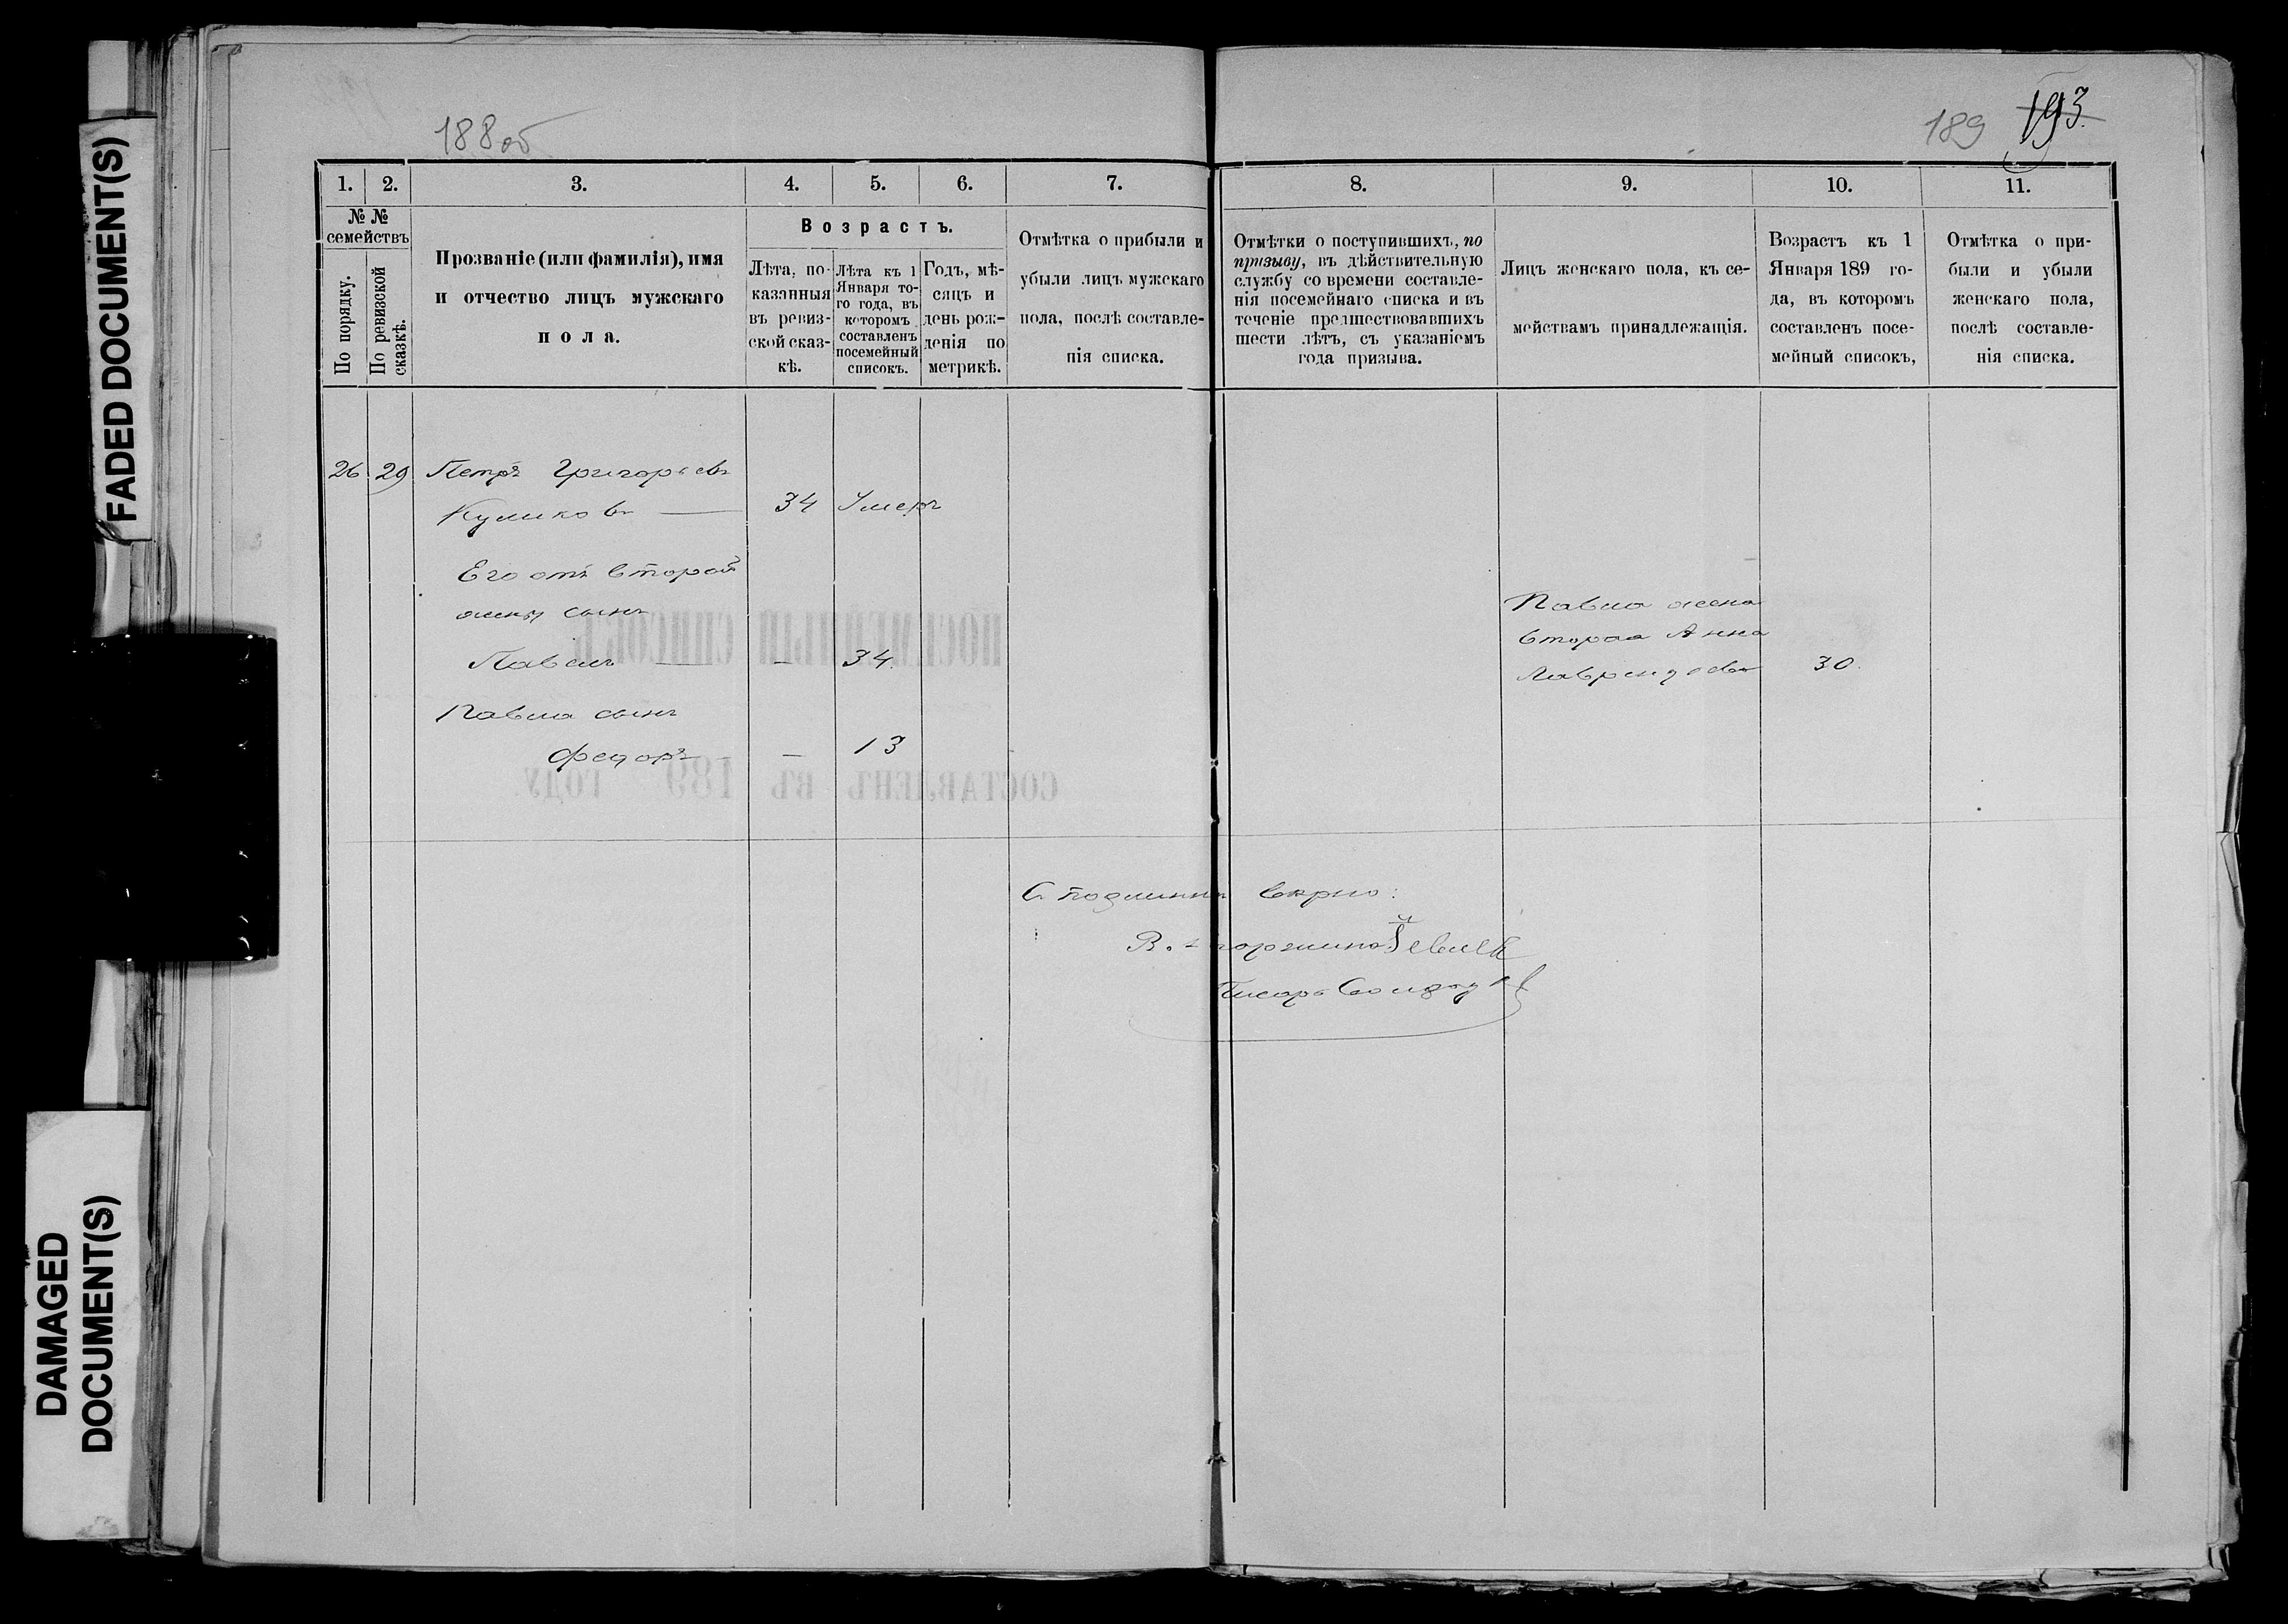 FADED DOCUMENT(S)
DAMAGED
DOCUMENT(S)
188об
189 193.
1. 2. 3. 4. 5. 6. 7.
№ №
семействъ
По порядку.
По ревизской
сказкѣ.
Прозваніе (или фамилія), имя
и отчество лицъ мужскаго
пола.
Возрастъ.
Лѣта, по-
казанныя
въ ревиз-
ской сказ-
кѣ.
Лѣта къ 1
Января то-
го года, въ
которомъ
составленъ
посемейный
списокъ.
Годъ, мѣ-
сяцъ и
день рож-
денія по
метрикѣ.
Отмѣтка о прибыли и
убыли лицъ мужскаго
пола, послѣ составле-
нія списка.
8. 9. 10. 11.
Отмѣтки о поступившихъ, по
призыву, въ дѣйствительную
службу со времени составле-
нія посемейнаго списка и въ
теченіе предшествовавшихъ
шести лѣтъ, съ указаніемъ
года призыва.
Лицъ женскаго пола, къ се-
мействамъ принадлежащія.
Возрастъ къ 1
Января 189 го-
да, въ которомъ
составленъ посе-
мейный списокъ,
Отмѣтка о при-
были и убыли
женскаго пола,
послѣ составле-
нія списка.
26 29 Петръ Григорьевъ
Куликовъ — 34 Умеръ
Его отъ второй
жены сынъ
Павелъ — — 34.
Павла сынъ
Федоръ — — 13
Павла жена
вторая Анна
Лаврентьева 30.
ПОСЕМЕЙНЫЙ СПИСОКЪ
СОСТАВЛЕНЪ ВЪ 189 ГОДУ.
С подлиннымъ вѣрно:
Писарь